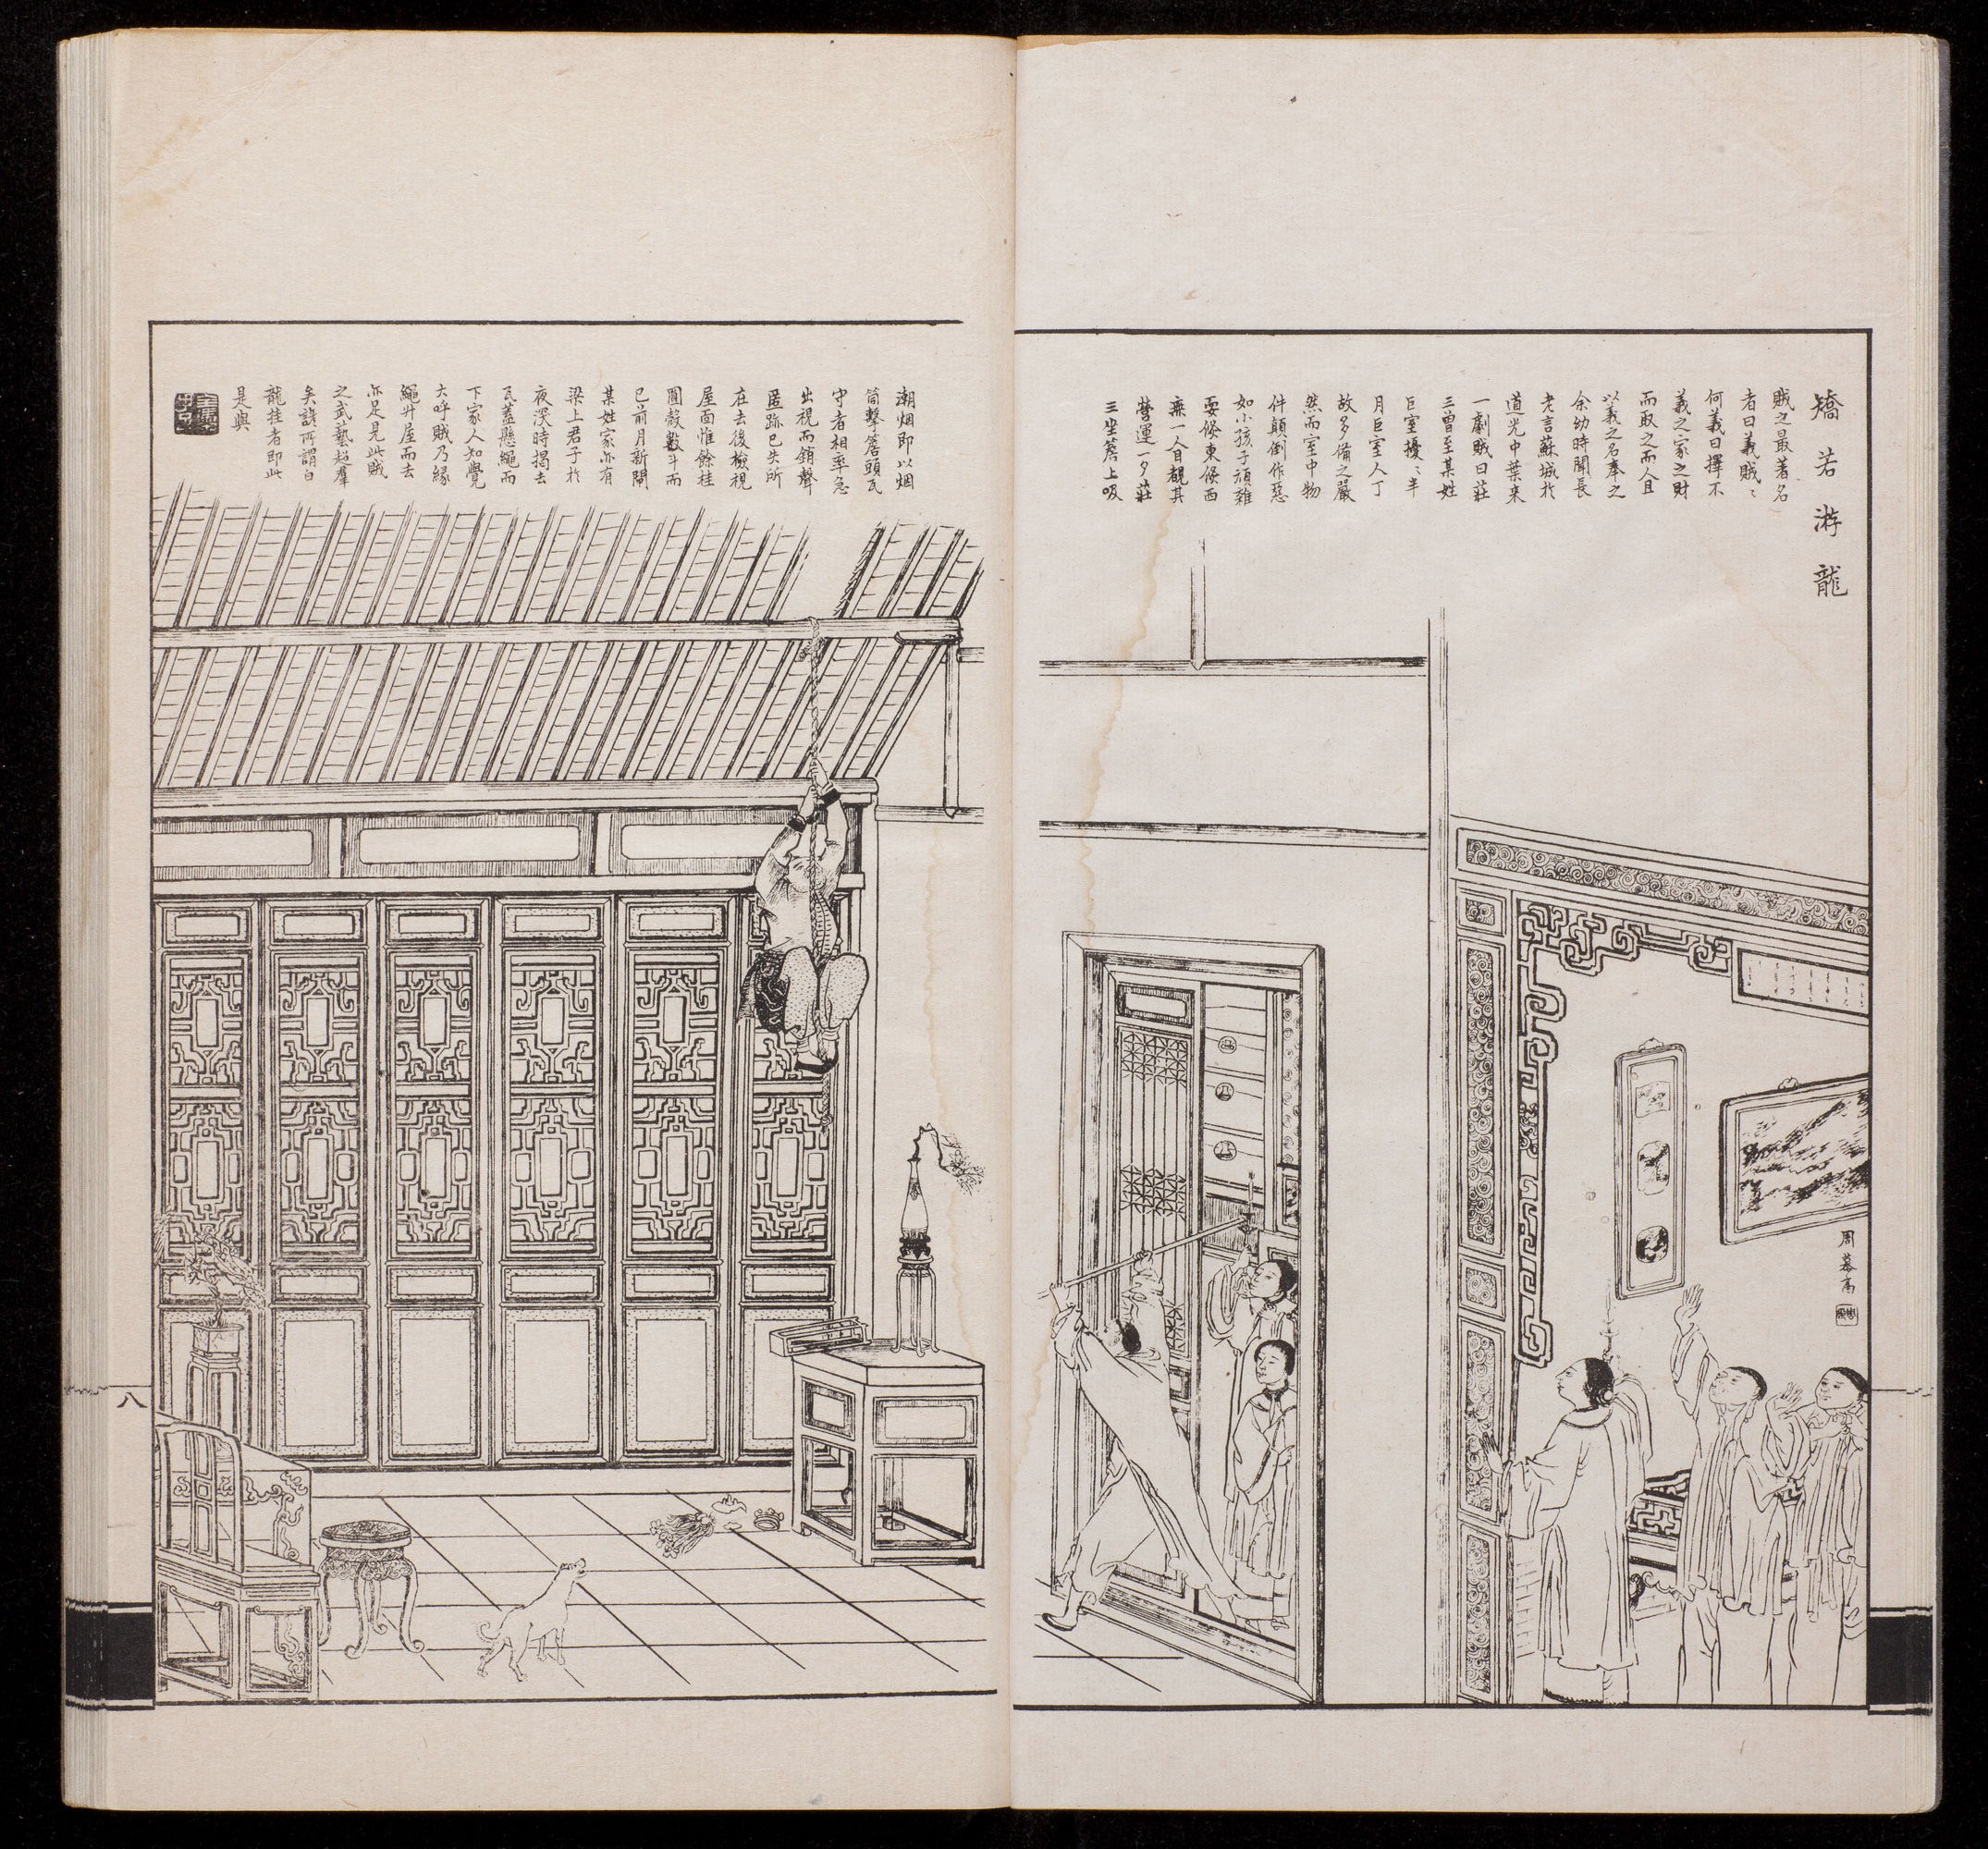 矯若游龍
賊之最著名
者曰義賊〻
何義曰擇不
義之家之財
而取之而人且
以義之名奉之
余幼時聞長
老言蘇城於
道光中葉來
一劇賊曰莊
三曾至某姓
巨室擾〻半
月巨室人丁
故多備之嚴
然而室中物
件顛倒作惡
如小孩子頑雜
耍倏東倏西
無一人目覩其
營運一夕莊
三坐簷上吸
潮烟即以烟
筒擊簷頭瓦
守者相率急
出視而銷聲
匿跡已失所
在去後檢視
屋面惟餘桂
圓殼數斗而
已前月新閘
某姓家亦有
梁上君子於
夜深時揭去
瓦蓋懸繩而
下家人知覺
大呼賊乃緣
繩升屋而去
亦足見此賊
之武藝超羣
矣諺所謂白
龍挂者即此
是與
周慕喬
八